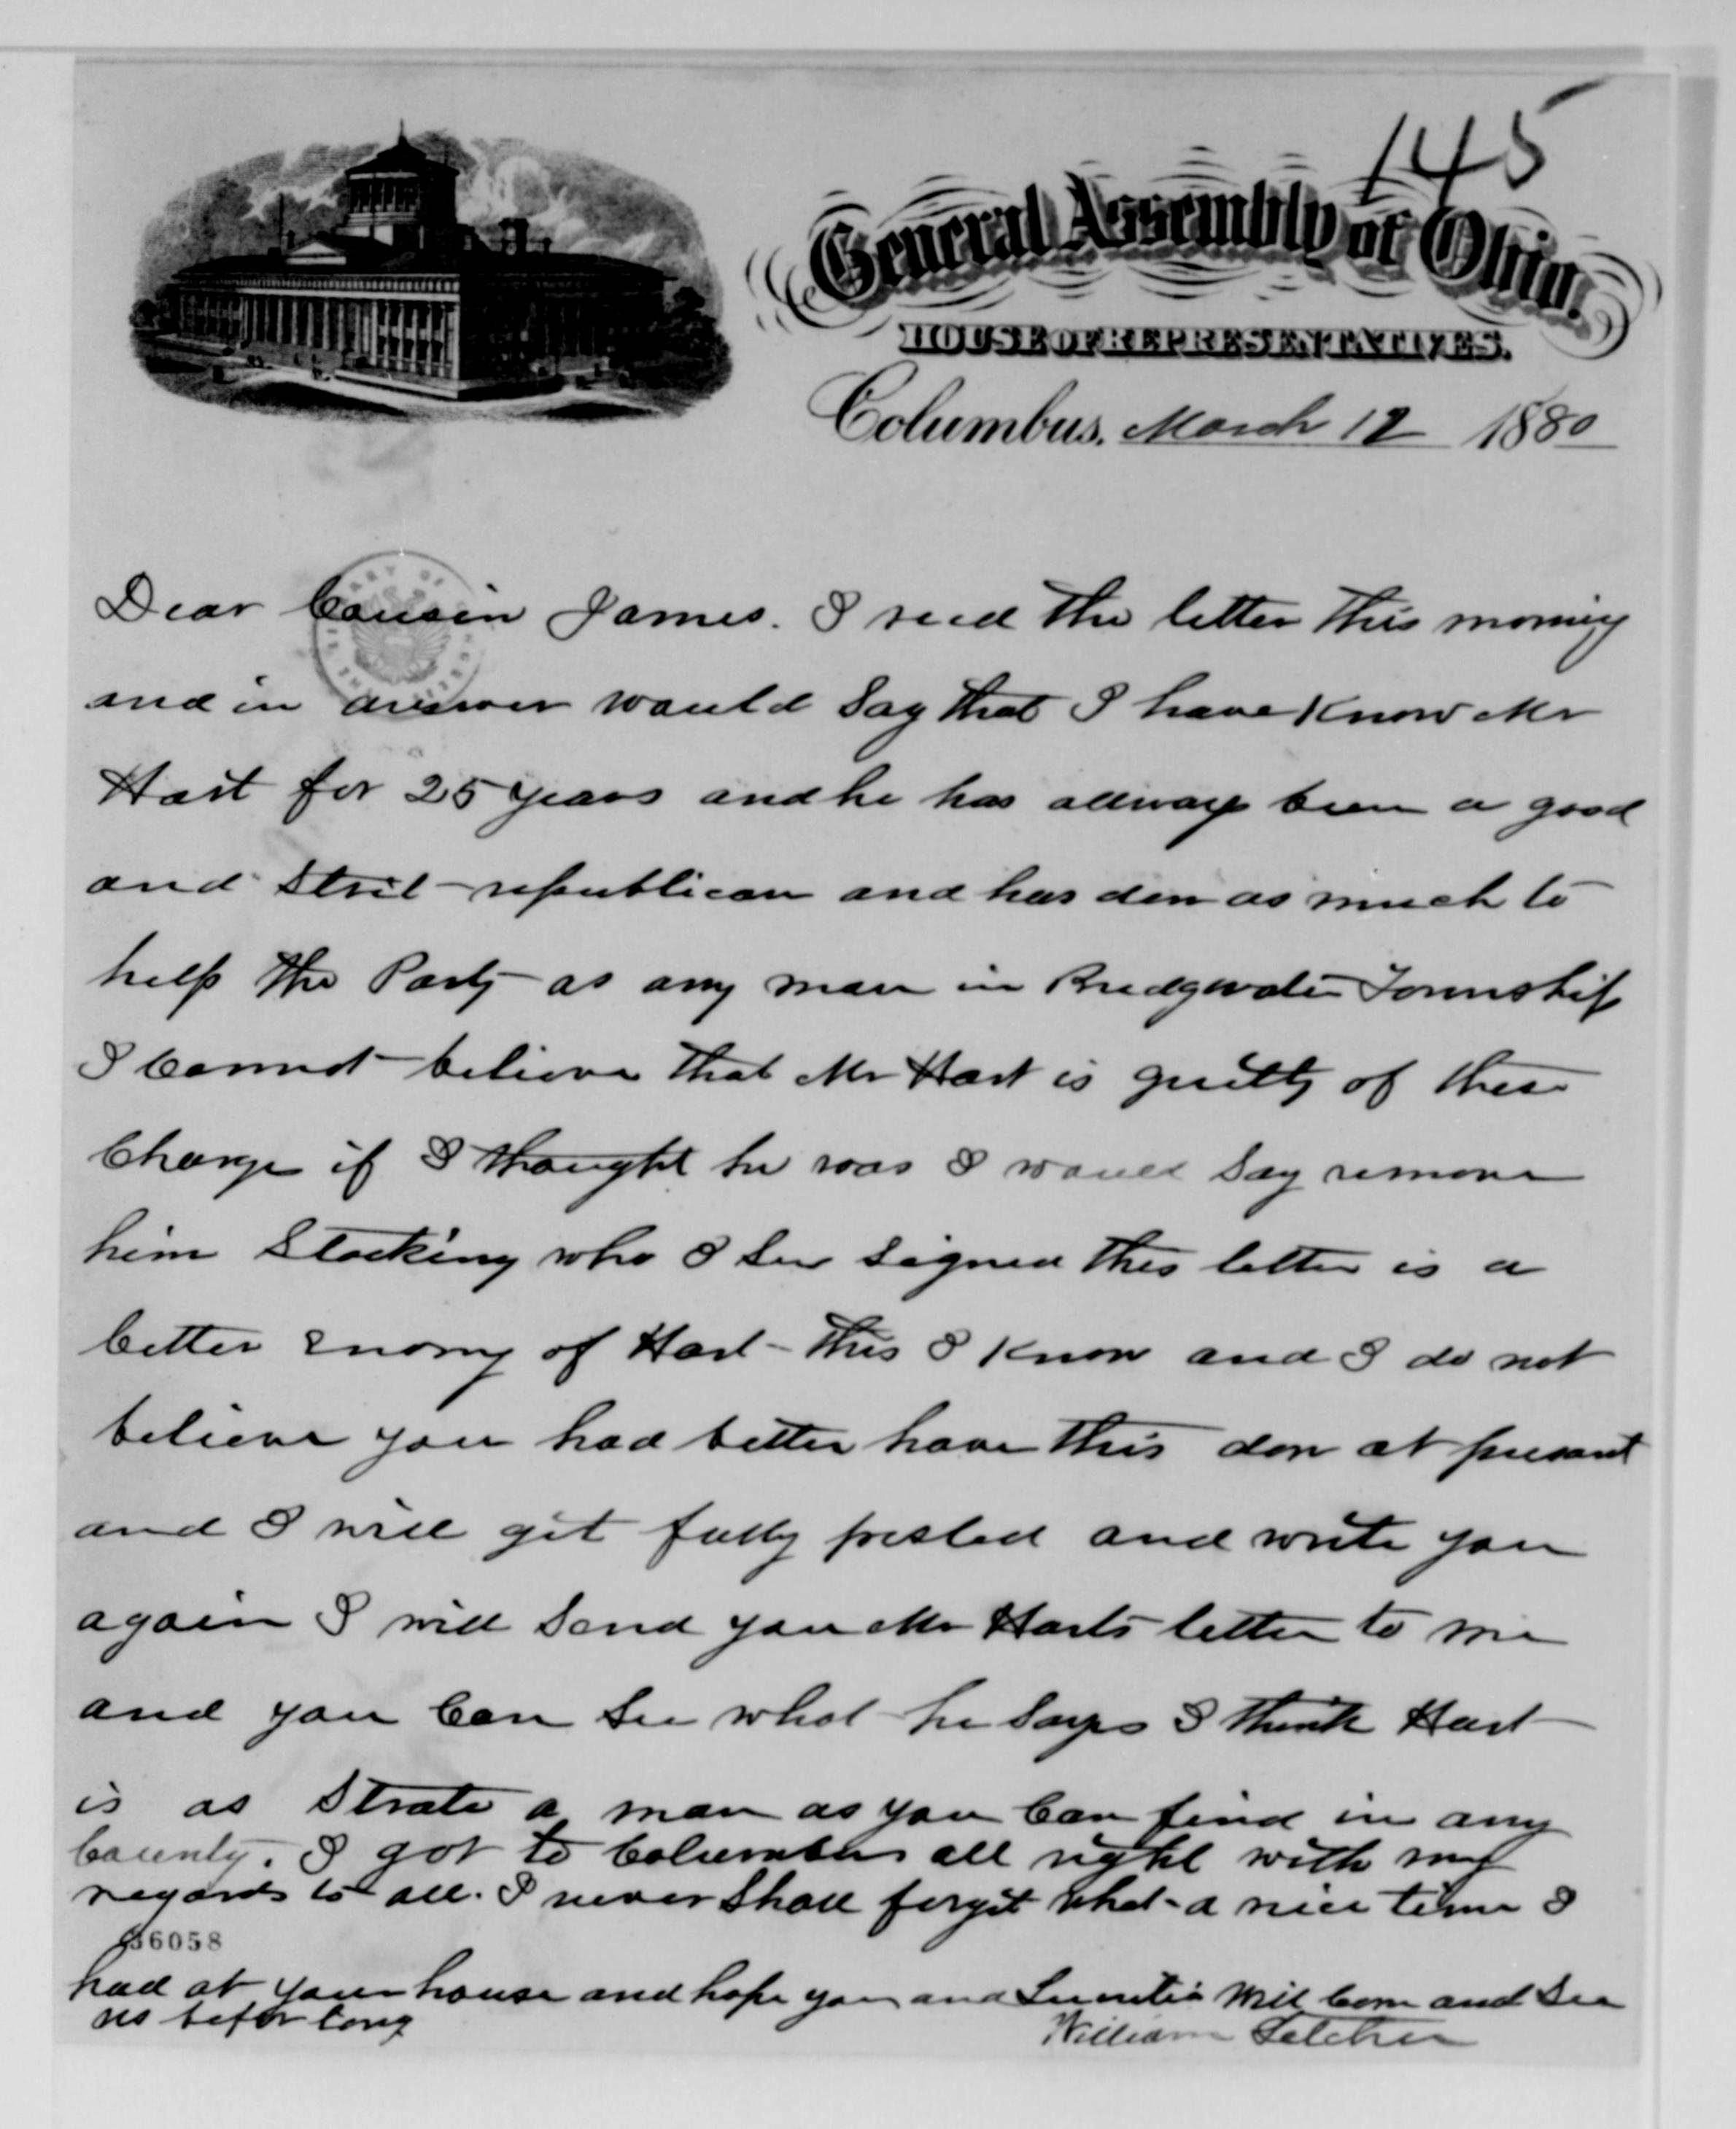 145
General Assembly of Ohio.
HOUSE OF REPRESENTATIVES.
Columbus, March 12 1880
Dear Cousin James. I recd the letter this morning
and in answer would Say that I have Know Mr
Hart for 25 years and he has allways been a good
and Strict republican and has don as much to
help the Party as any man in Bridgwater Township
I Cannot believe that Mr Hart is guilty of these
Charge if I thought he was I would Say remove
him Stocking who I See Signed this letter is a
bitter Enomy of Hart this I Know and I do not
believe you had better have this don at present
and I will git fully posted and write you
again I will Send you Mr Harts letter to me
and you Can See what he Says I think Hart
is as Strate a man as you Can find in any
County. I got to Columbus all right with my
regards to all. I never Shall forgit what a nice time I
36058
had at your house and hope you and Lucretia will Com and See
us befor long
William Letcher